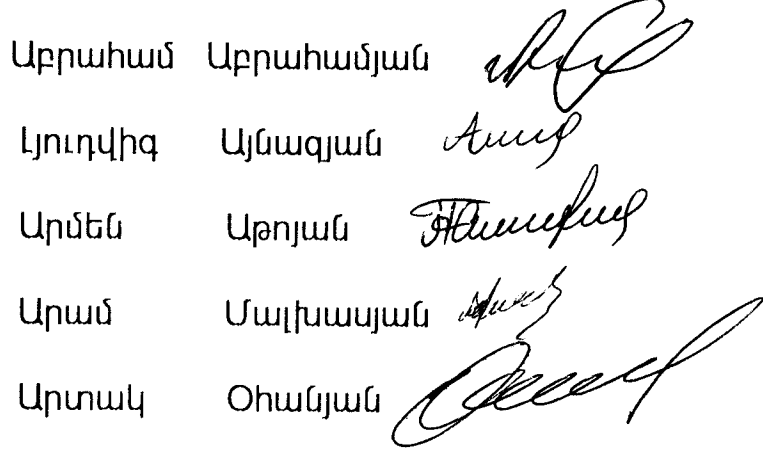 Աբրահամ Աբրահամյան
Լյուդվիգ Այնազյան
Արմեն Աթոյան
Արամ Մալխասյան
Արտակ Օհանյան